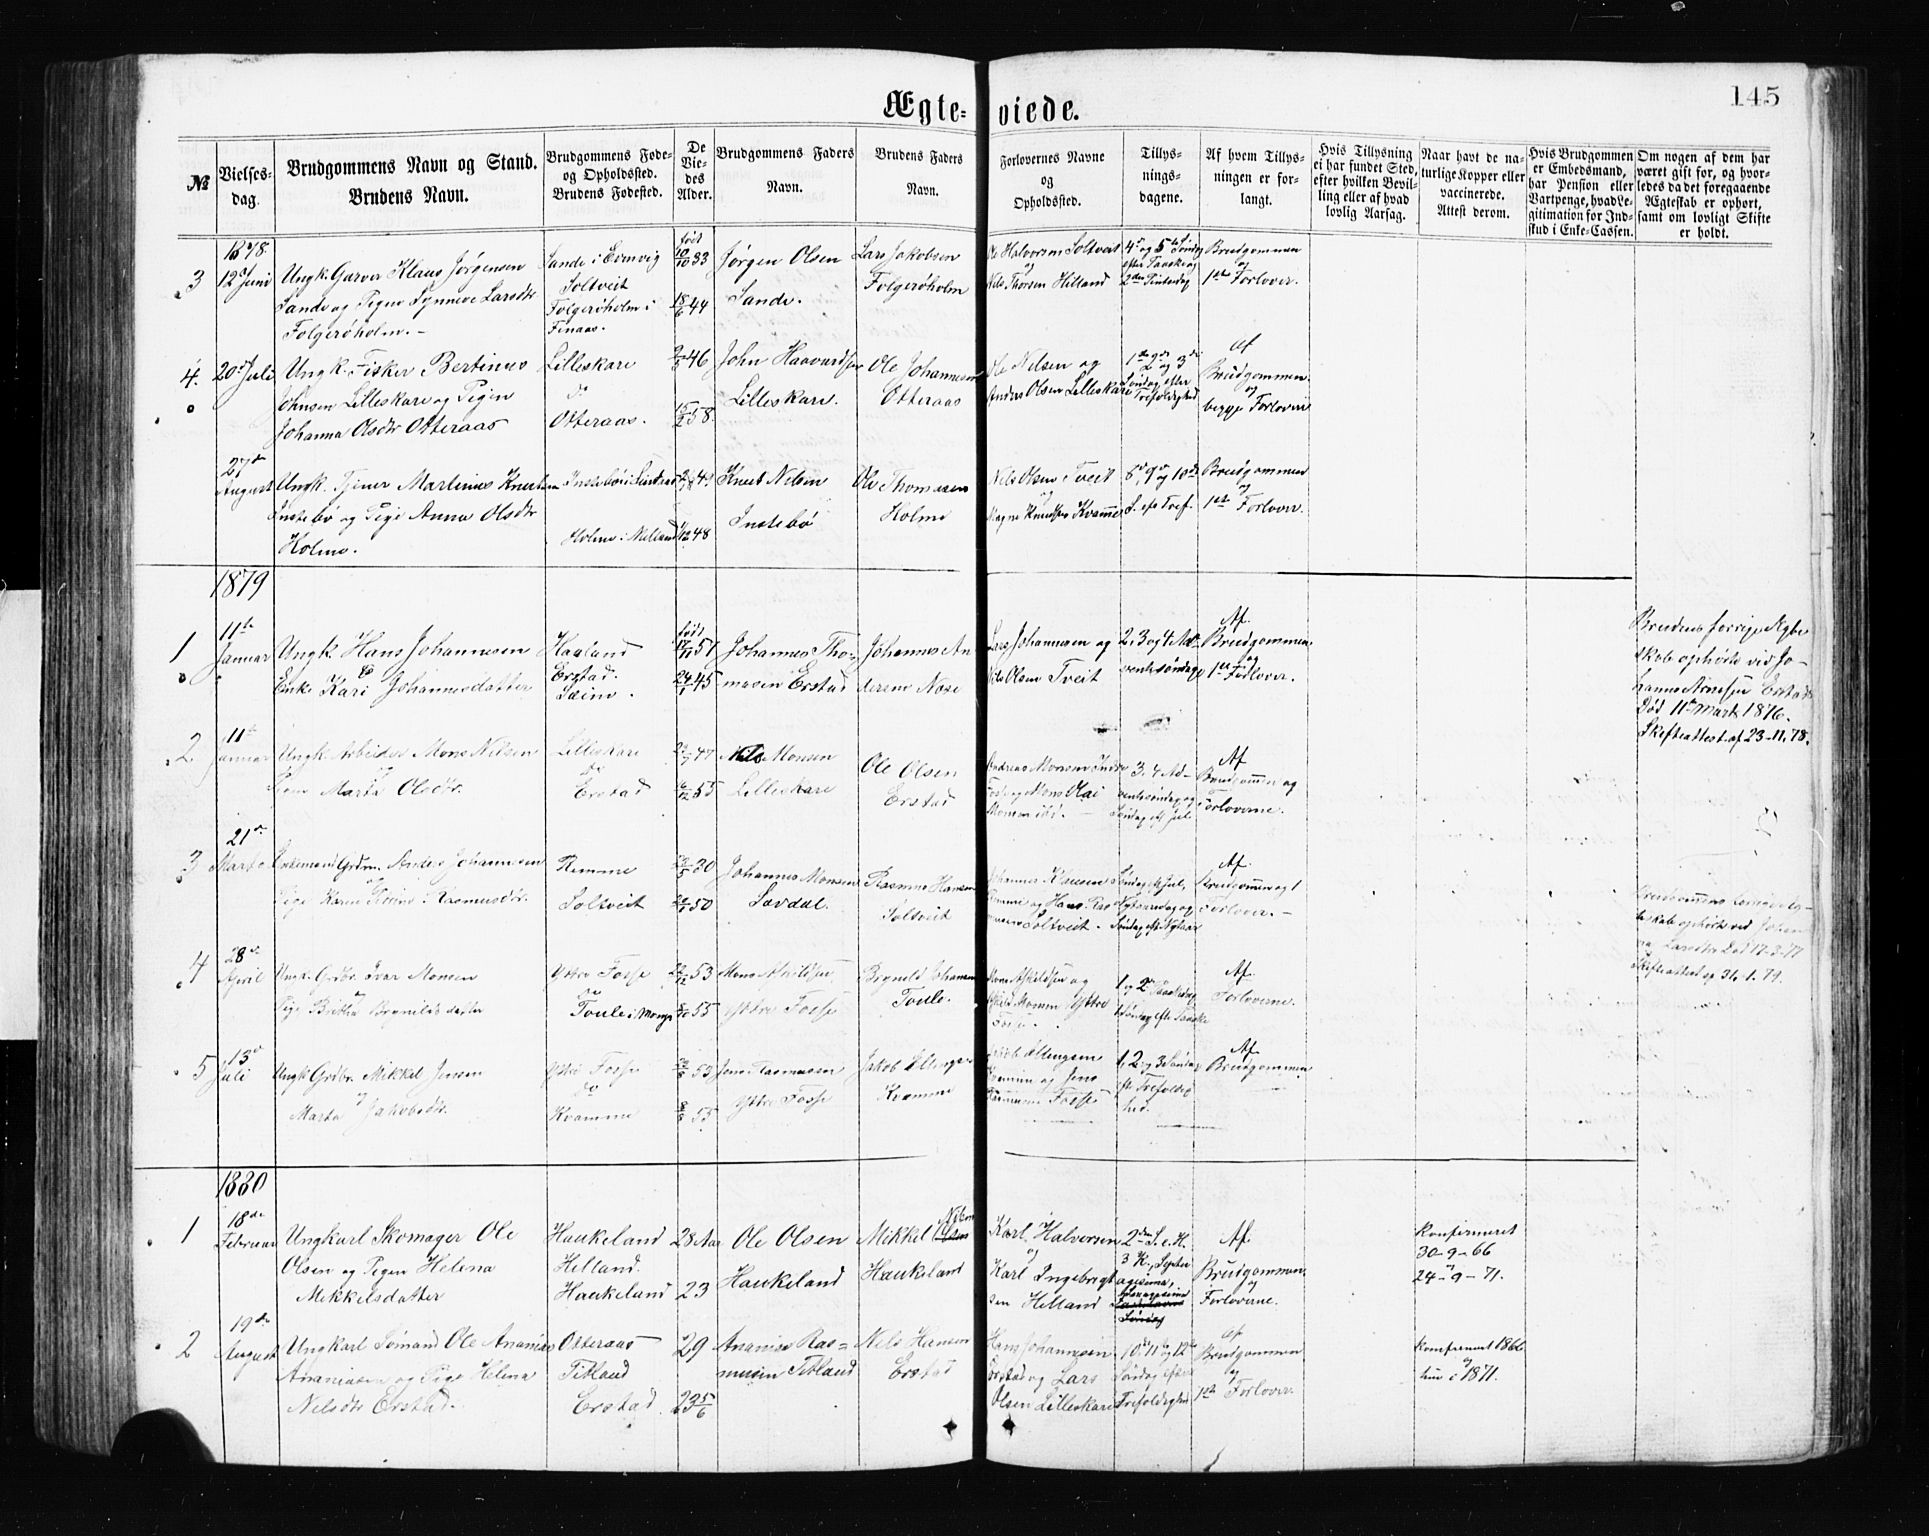 145
Ægte-viede.
№
Vielses-dag.
Brudgommens Navn og Stand.
Brudens Navn.
Brudgommens Føde- og Opholdssted.
Brudens Fødested.
De Vie-des Alder.
Brudgommens Faders Navn.
Brudens Faders Navn.
Forlovernes Navne og Opholdssted.
Tillys-nings-dagene.
Af hvem Tillys-ningen er for-langt.
Hvis Tillysning ei har fundet Sted, efter hvilken Bevil-ling eller af hvad lovlig Aarsag.
Naar havt de na-turlige Kopper eller vaccinerede. Attest derom.
Hvis Brudgommen er Embedsmand, har Pension eller Vartpenge, hvad Le-gitimation for Ind-skud i Enke-Cassen.
Om nogen af dem har været gift før, og hvor-ledes da det foregaaende Ægteskab er ophørt, samt om lovligt Skifte er holdt.
1878.
3
12te Juni
Ungk. Garver Klaus Jørgensen
Sande og Pigen Synneve Larsdtr
Folgerøholm.
Sande i Evindvig
Soltveit
Folgerøholm i
Finaas.
født
10/10 33
18/6 44
Jørgen Olsen
Sande.
Lars Jakobsen
Folgerøholm
Halvorsen Soltveit
og
Nils Thorsen Hilland
4de og 5te Søndag
efter Paaske og
2den Pintsedag
Brudgommen
og
1ste Forlover.
4.
20de Juli
Ungk. Fisker Bertinus
Johnsen Lilleskare og Pigen
Johanna Olsdtr Otteraas
Lilleskare
do
Otteraas.
46
58.
John Haavardsen
Lilleskare.
Ole Johannesen
Otteraas
Ole Nilsen og
Anders Olsen Lilleskare
1ste 2den og 3die
Søndag efter
Trefoldighed
Af
Brudgommen
og
begge Forlovere
27de
August
Ungk. Tjener Martinus Knutsen
Instebø og Pige Anna Olsdtr
Holme.
Instebø i
Holme i Meland
12 48
Knut Nilsen
Instebø
Ole Thomasen
Holme
Nils Olsen Tveit
og
Magne Knudsen Kvamme
8de, 9de og 10de
S. eft Tref.
Brudgommen
og
1ste Forlover.
1879
1
11te
Januar
Ungk. Hans Johannesen
og
Enke Kari Johannesdatter
Haaland
Erstad.
Sæim.
født
57
24/1 45
Johannes Tho-
masen Erstad
Johannes An
dersen Nose
Lars Johannesen og
Nils Olsen Tveit
2, 3 og 4 Ad-
ventssøndag
Af
Brudgommen
og
1ste Forlover.
Brudens forrige Ægte
skab ophørte ved Jo-
hannes Arnesen Erstads
Død 11te Marts 1876.
Skifteattest af 23-11.78.
2.
11te
Januar
Ungk. Arbeider Mons Nilsen
og
Marta Olsdtr.
Lilleskare
do
Erstad
47
12 55
Nils Monsen
Lilleskare
Ole Olsen
Erstad
Andreas Monsen Indre
Fosse og Mons
Monsen
3. 4 Ad-
ventssøndag og
Søndag eft Jul
Af
Brudgommen og
Forloverne.
3
21de
Marts
Enkemand Grdm. Anders Johannesen
og
Pige Karen Rasmusdtr.
Remme
Soltveit
30
50
Johannes Monsen
Sævdal.
Rasmus Hansen
Soltveit
Johannes Klausen
Remme og Hans Ras
musen Soltveit.
Søndag eft Jul,
Nytaarsdag og
Søndag eft Nytaar
Af
Brudgommen og 1
Forlover.
skab ophørte ved Johan
na Larsdtr Død 17-3-77
Skifteattest af 31-1.79.
4
28de
April
Ungk. Grdbr. Ivar Monsen
og
Pige Britha Brynildsdatter
Ytre Fosse
do
Toule i Mange
53
10 55
Mons Askildsen
Ytre Fosse
Brynild Johannesen
Toule.
Mons Askildsen og
Askild Monsen Ytre
Fosse.
1 og 2den Paaskedag
1 Søndag eft. Paaske
Af
Forloverne.
5
13de
Juli
Ungk. Grdbr. Mikkel Jensen
og
Marta Jakobsdtr.
Ytre Fosse
do
Kvamme
53
55
Jens Rasmusen
Ytre Fosse
Jakob Ellingsen
Kvamme
Jakob Ellingsen
Kvamme og Jens
Rasmusen Fosse
1, 2 og 3 Søndag
eft Trefoldig
hed.
Af
Brudgommen
1880
1
18de
Februar
Ungkarl Skomager Ole
Olsen og Pigen Helena
Mekkelsdatter
Haukeland
Helland.
Haukeland
28 Aar
23
Ole Olsen
Haukeland
Mikkel Nilsen
Haukeland
Karl Halvorsen
og
Karl Ingebrigt
sen Helland
2den S. e. H.
3 K., Septu
agesima,
Af
Brudgommen
og
Forloverne.
Konfirmeret
30-9-66
og
24-9-71.
2
19de
August
Ungkarl Sømand Ole Ananias
Ananiasen og Pige Helena
Nelsdtr Erstad.
Otteraas
Titland
Erstad.
29
23 5/6
Ananias Ras-
musen Titland
Nils Hansen
Erstad
Hans Johannesen
Erstad og Lars
Olsen Lilleskare
10de 11te og 12te
Søndag efter
Trefoldighed
Af
Brudgommen
og
1ste Forlover.
Konfirmeret 1866
og
hun i 1871.